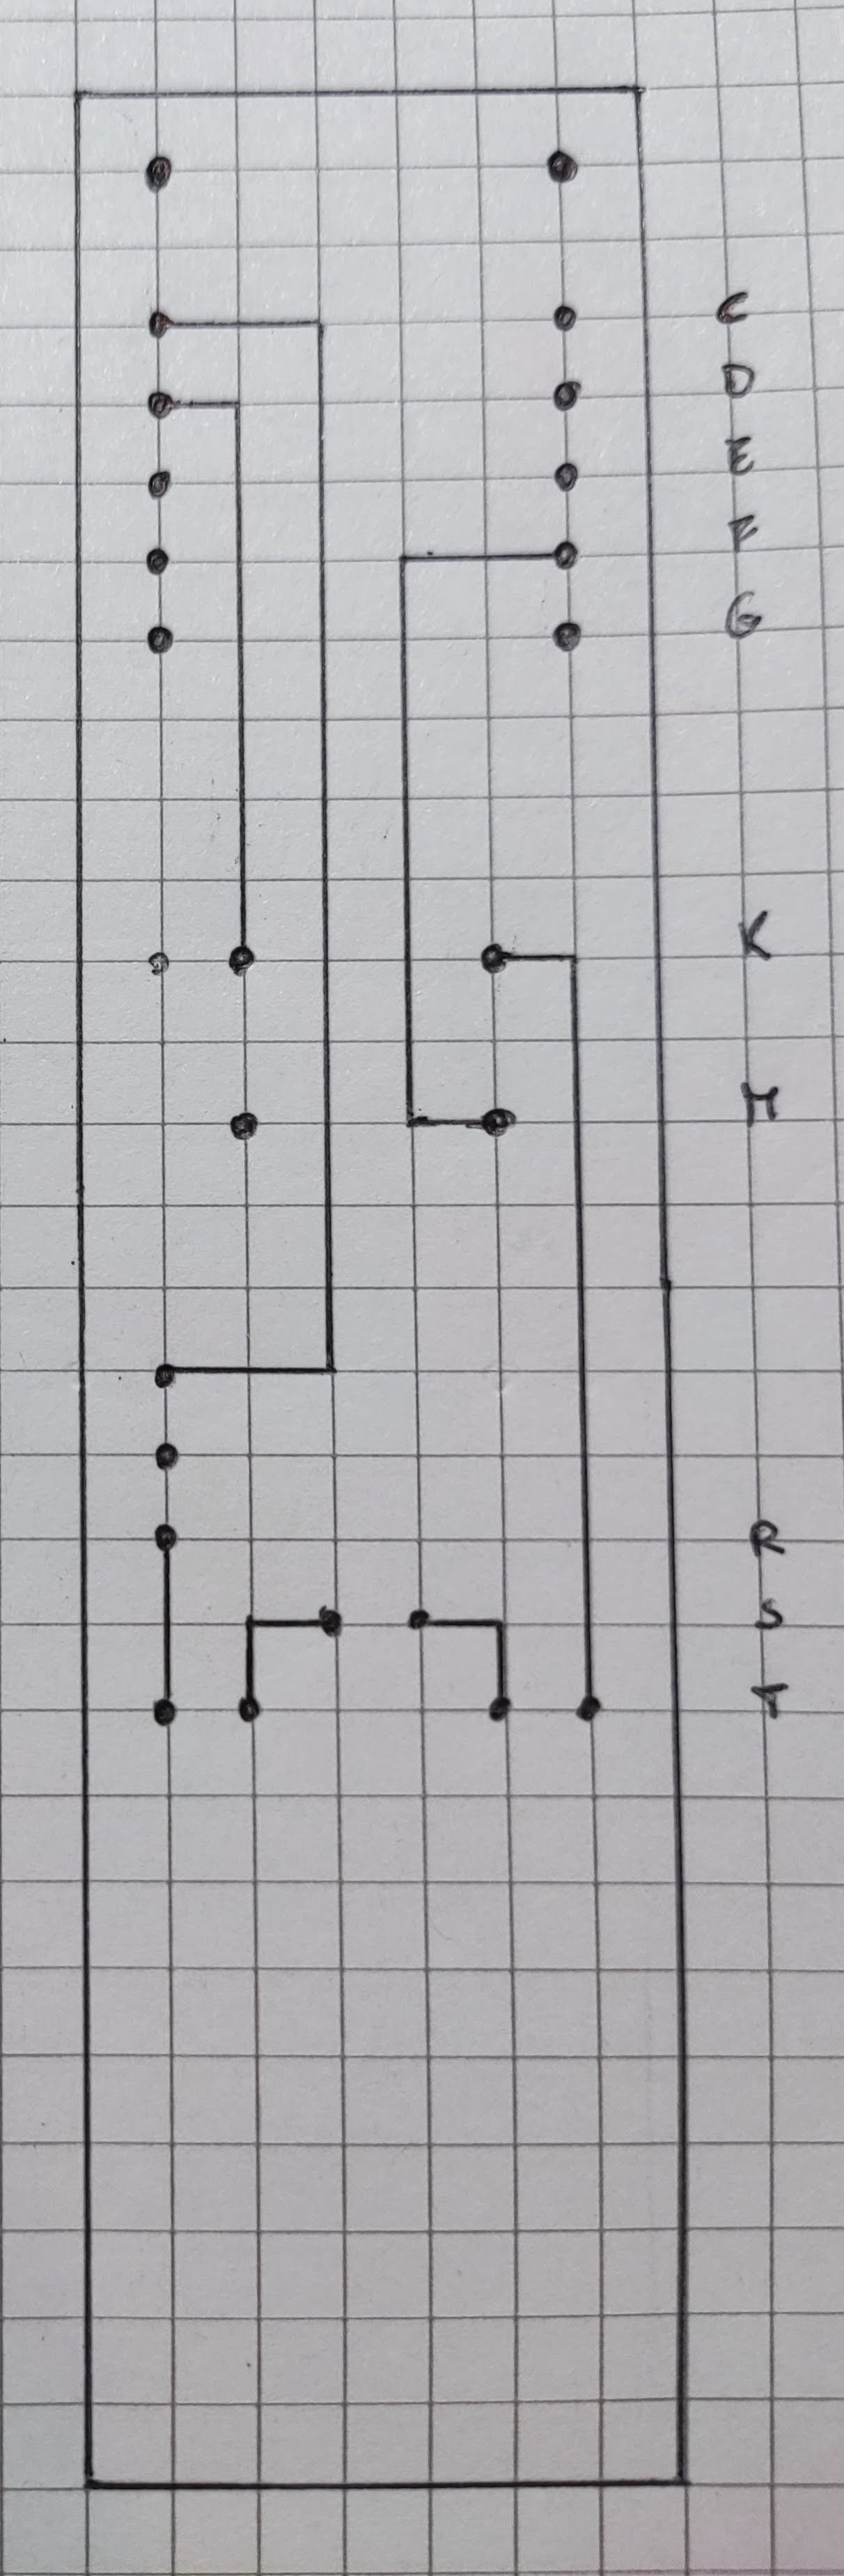 C
D
E
F
G
K
M
R
S
T